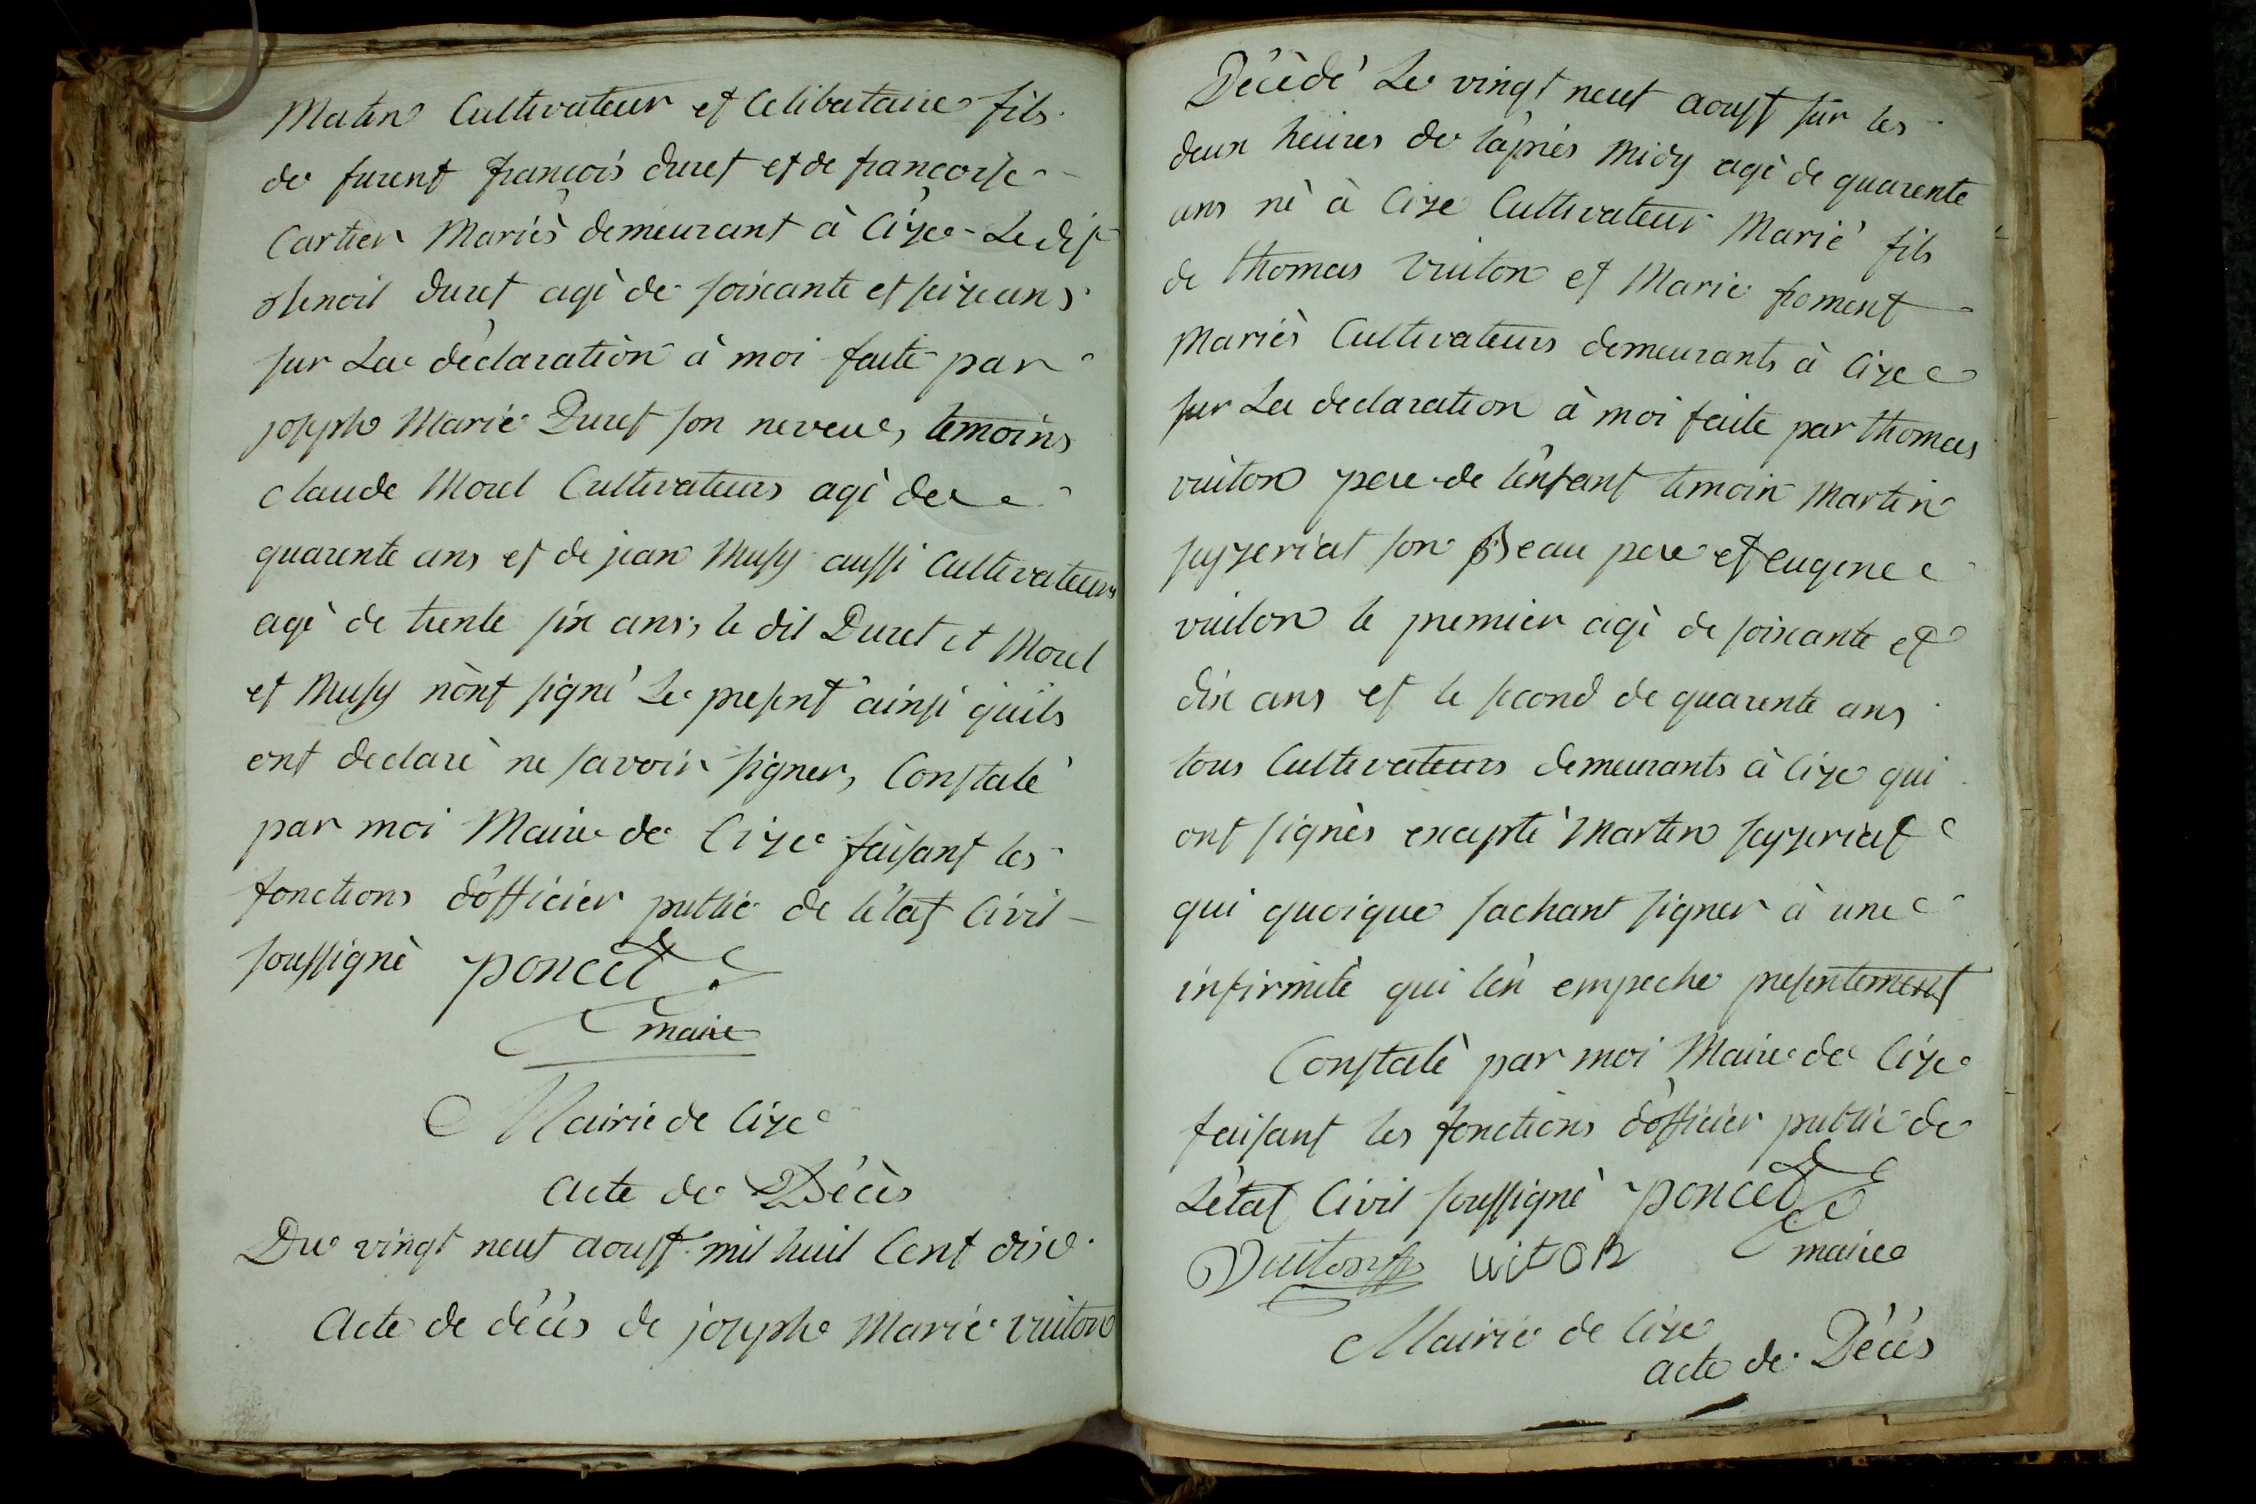 Matin Cultivateur et Celibataire fils
de furent françois duret et de françoise
Cartier Mariés demeurant à Cize - Le dit
Benoit duret agé de soixante et seize ans
sur La déclaration à moi faite par
joseph Marie Duret son neveu, temoins
claude Morel Cultivateurs agé de
quarente ans et de jean Musy aussi Cultivateurs
agé de trente six ans, le dit Duret et Morel
et Musy n'ont signé Le present ainsi qu'ils
ont declaré ne savoir signer, Constaté
par moi Maire de Cize faisant les
fonctions d'officier public de l'état Civil
soussigné poncet
maire
Mairie de Cize
acte de Décès
Du vingt neuf aoust mil huit Cent dix
Acte de décès de joseph Marie Vuiton
Décédé Le vingt neuf aoust sur les
deux heures de l'apriés midy agé de quarente
ans né à Cize Cultivateur Marié fils
de thomas Vuiton et Marie froment
Mariés Cultivateurs demeurants à Cize
sur La declaration à moi faite par thomas
vuiton pere de l'enfant temoin Martin
son Beau pere et eugene
vuiton le premier agé de soixante et
dix ans et le second de quarente ans
tous Cultivateurs demeurants à Cize qui
ont signés excepté Martin
qui quoique sachant signer à une
infirmité qui l'en empeche presentement
Constaté par moi Maire de Cize
faisant les fonctions d'officier public de
L'état Civil soussigné poncet
Vuiton uiton maire
Mairie de Cize
acte de Décés